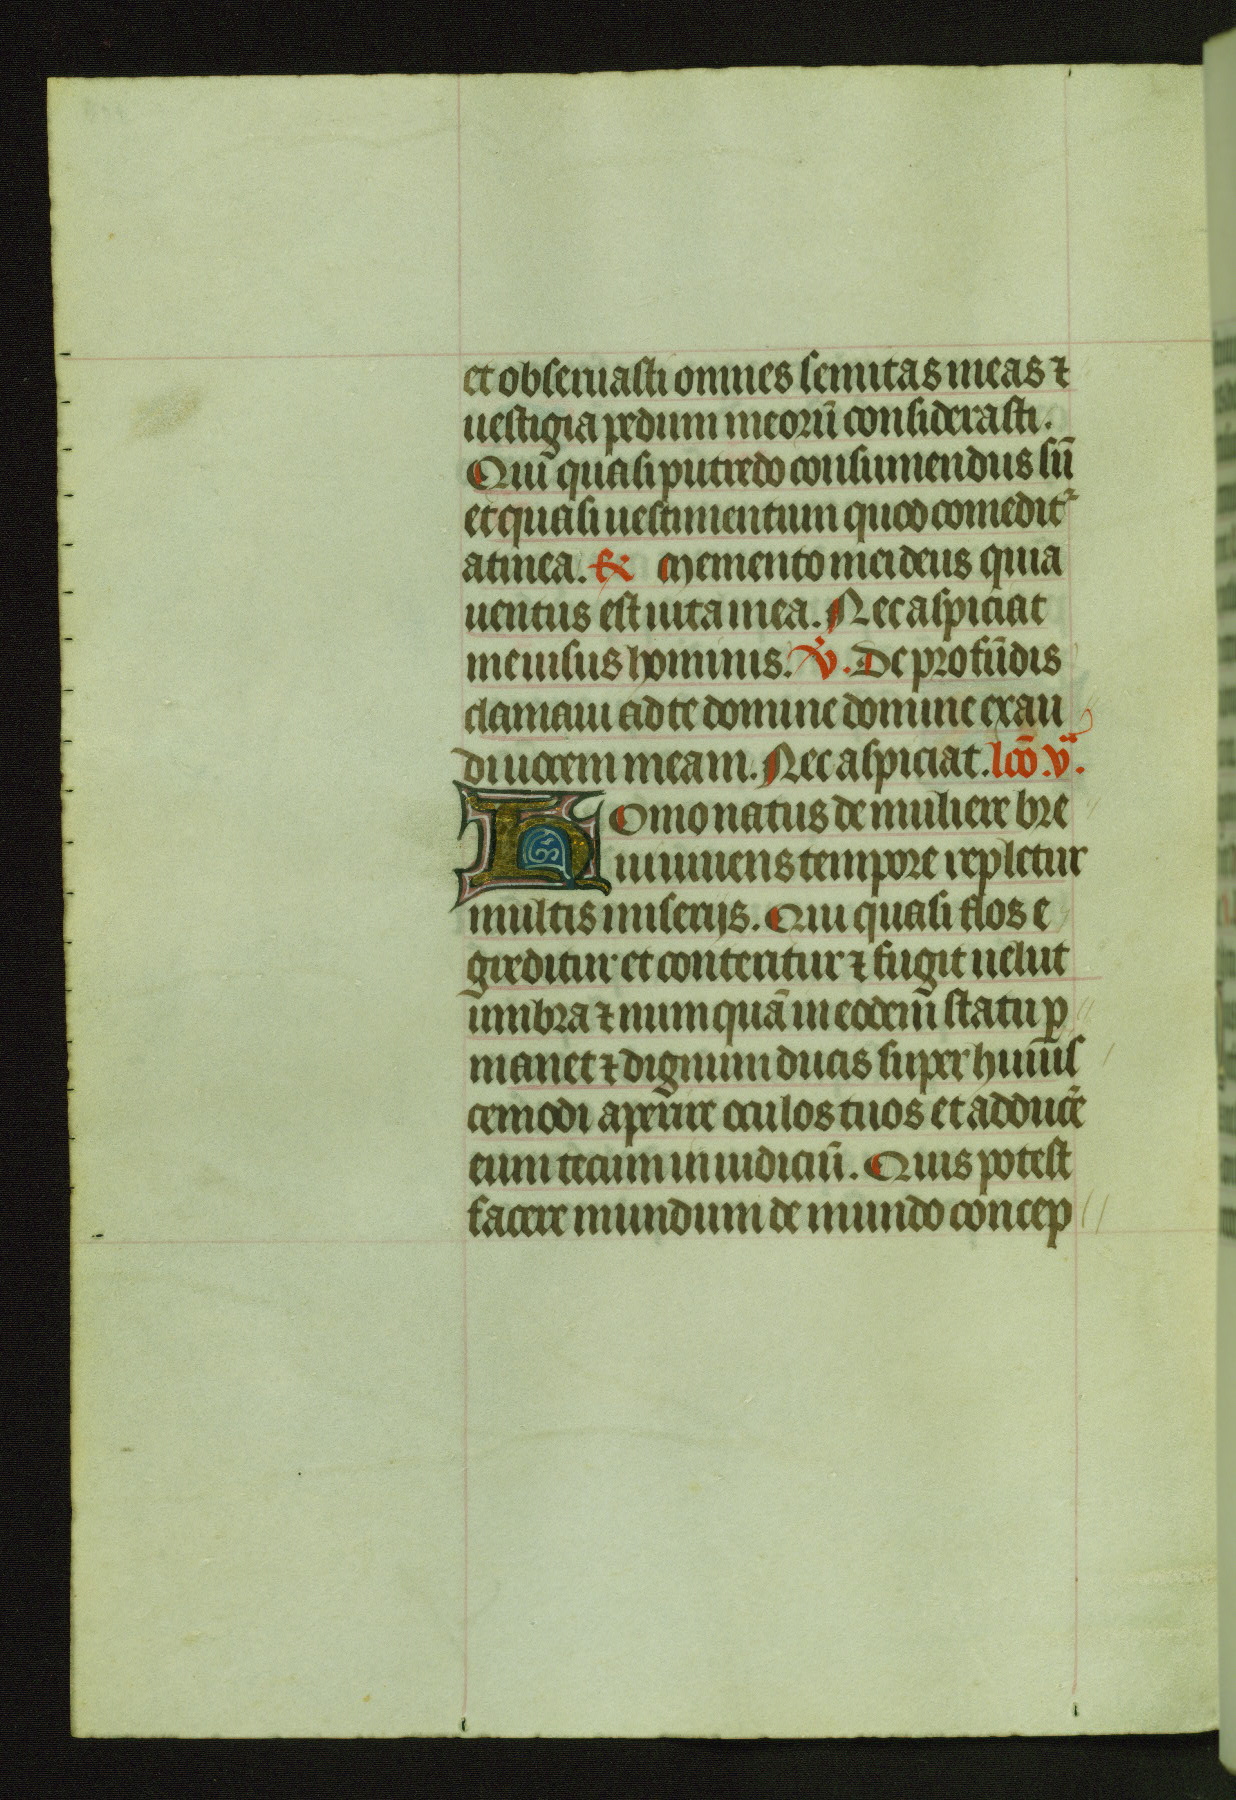 et obseruasti omnes semitas meas ⁊
uestigia pedum meorū considerasti.
Qui quasi putredo consumendus sū
et quasi uestimentum quod comedit᷑
a tinea. ℟ Memento mei deus quia
uentus est uita mea. Nec aspiciat
me uisus hominis. ℣. De profūdis
clamaui ad te domine domine exau
di uocem meam. Nec aspiciat. lcō. v̄.
Homo natus de muliere bre
ui uiuens tempore repletur
multis miserijs. Qui quasi flos e
greditur et conteritur ⁊ fugit uelut
umbra ⁊ numquā in eodem statu ꝑ
manet ⁊ dignum ducis super huiuīs
cemodi aperire oculos tuos et adducē
eum tecum in iudiciū. Quis potest
facere mundum de mundo concep